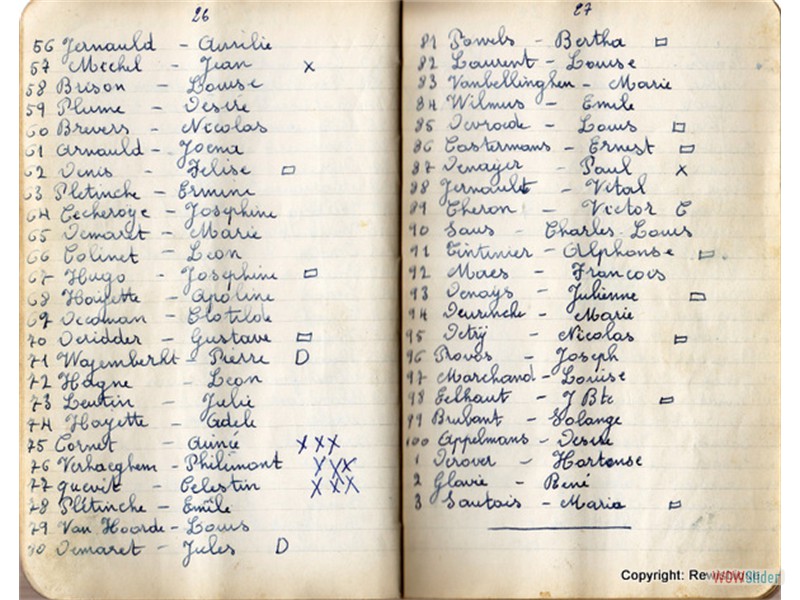 26
56 Jernauld - Aurilie
57 Mechel - Jean x
58 Brison - Louise
59 Plume - Desire
60 Brevers - Nicolas
61 Arnauld - Joema
62 Denis - Felise
63 Pletinche - Ermine
64 Lecheroye - Josephine
65 Demaret - Marie
66 Colinet - Leon
67 Hugo - Josephine
68 Hoyette - Apoline
69 Clotilde
70 Deridder - Gustave
71 Wajemberht - Pierre D
72 Hagne - Leon
73 Leutin - Julie
74 Hoyette - Adele
75 Cornet - xxx
76 Verhaeghem - Philimont xxx
77 quevit - Celestin xxx
78 Pletinche - Emile
79 Van Hoorde - Louis
80 Demaret - Jules D
27
81 Pauvels - Bertha
82 Laurent - Louise
83 Vanbellinghen - Marie
84 Wilmus - Emile
85 Devroede - Louis
86 Castermans - Ernest
87 Denayer - Paul x
88 Jernault - Vital
89 Cheron - Victor C
90 Saus - Charles-Louis
91 Tintinier - Alphonse
92 Maes - Francois
93 Denays - Julienne
94 Deurinche - Marie
95 Detrij - Nicolas
96 Provos - Joseph
97 Marchand - Louise
98 Eelhaut - J Bte
99 Brubant - Solange
100 Appelmans - Desire
1 Derover - Hortense
2 Glavie - René
3 Sautois - Maria
Copyright: Re
WOWSlider